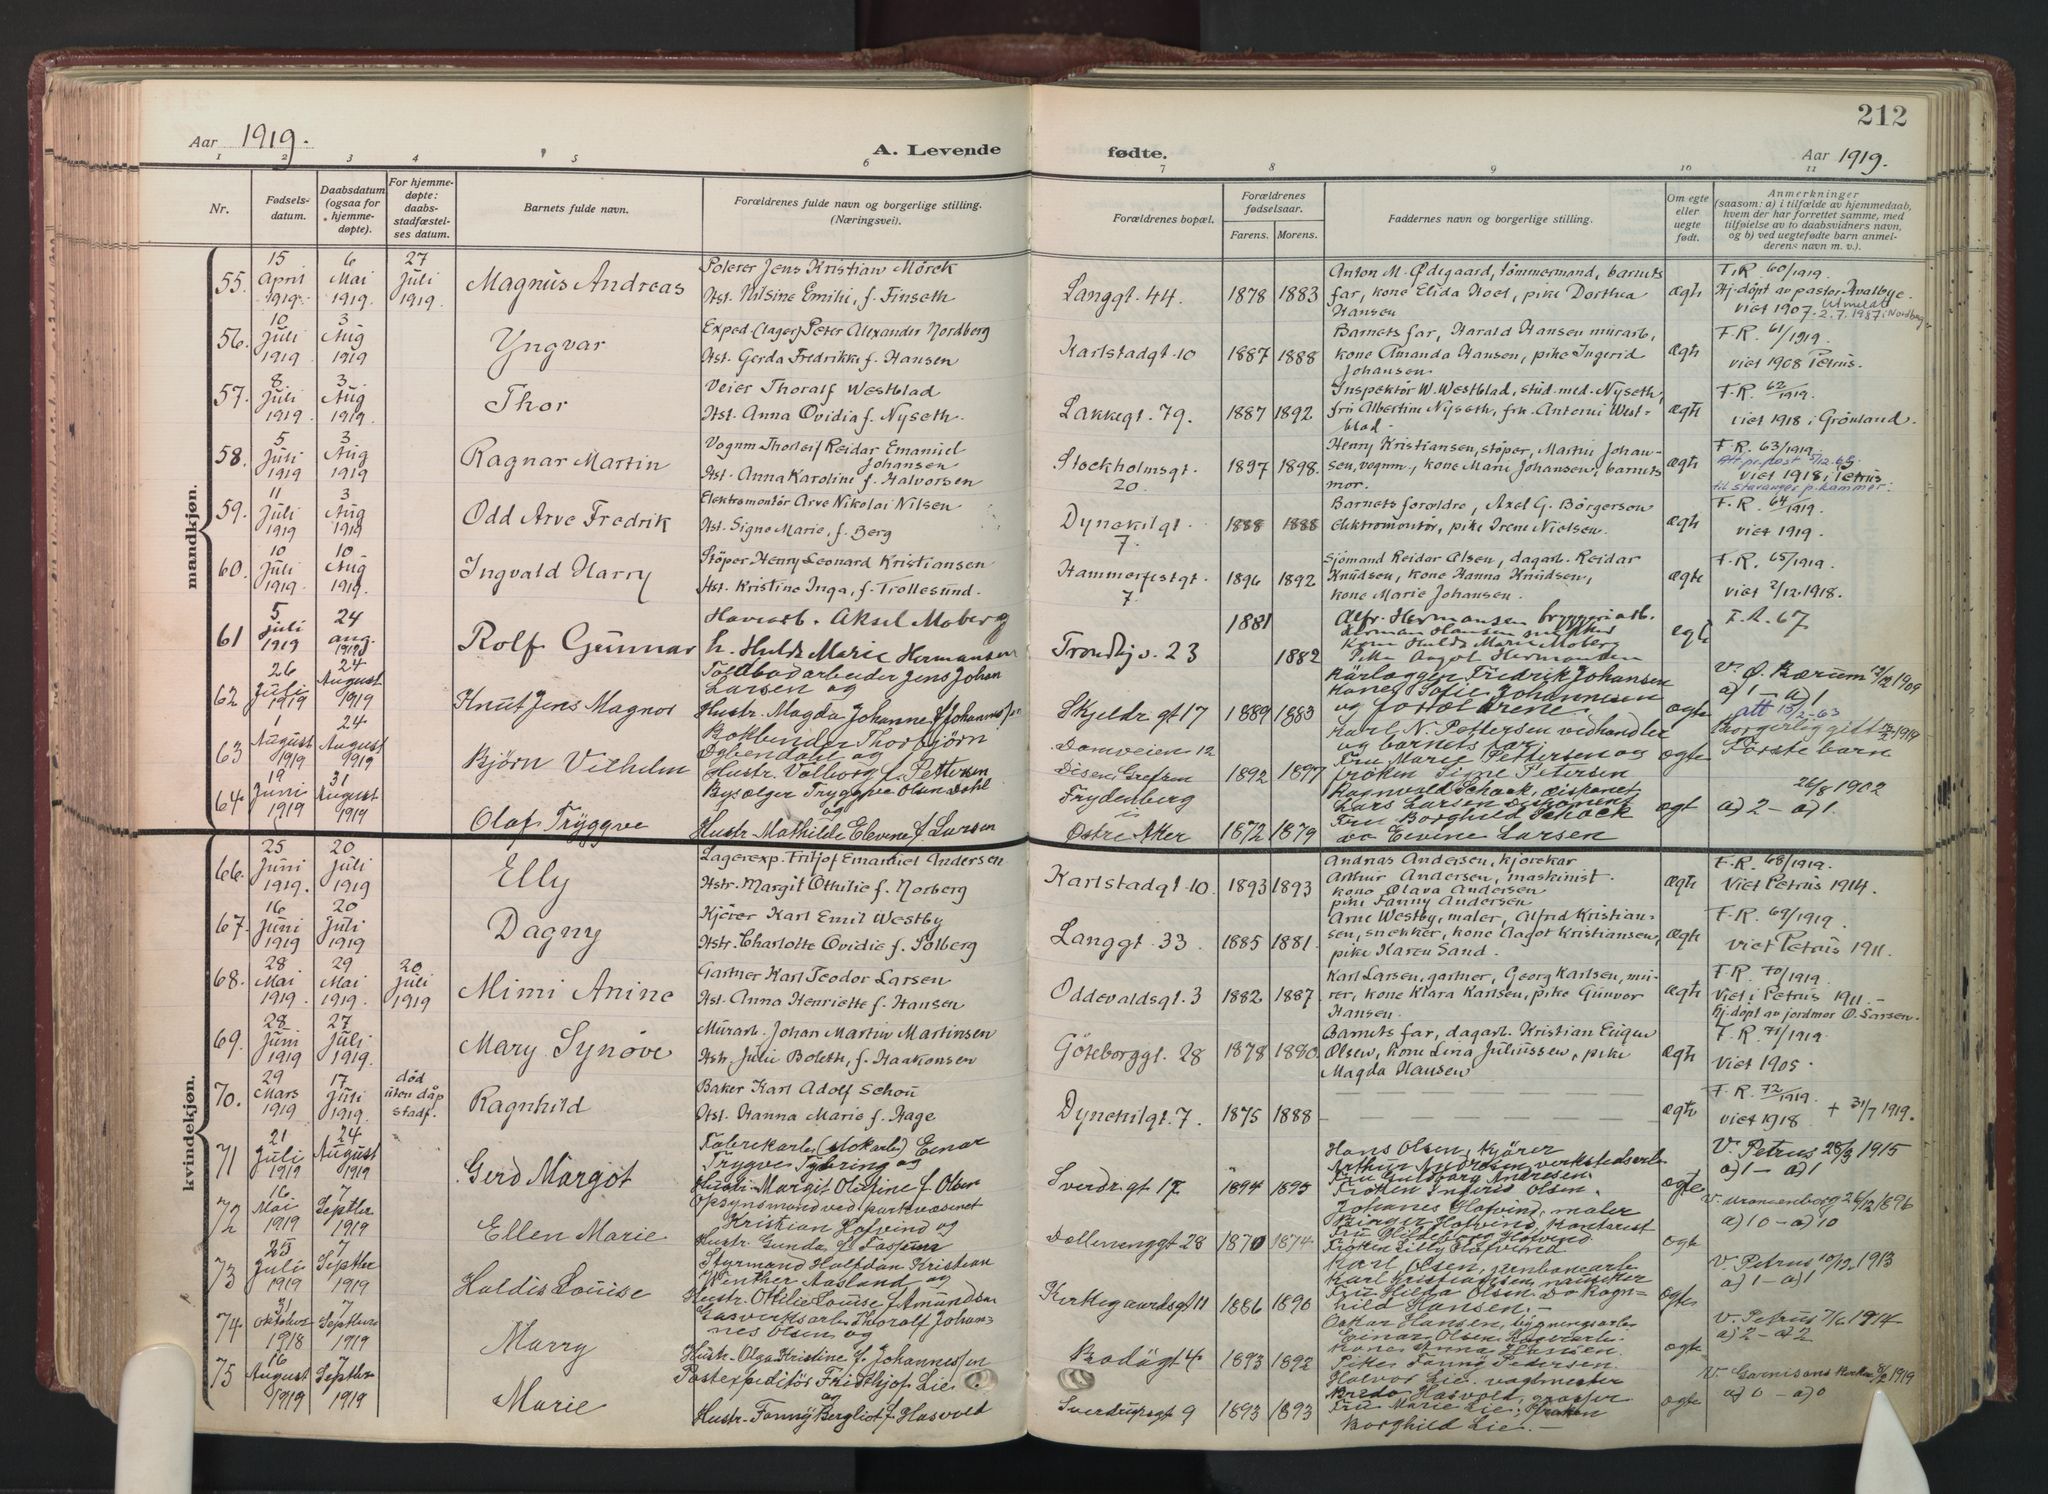 212
Aar 1919.
A. Levende
fødte.
Aar 1919.
1 2 3 4 5 6 7 8 9 10 11
Nr.
Fødsels-
datum.
Daabsdatum
(ogsaa for
hjemme-
døpte).
For hjemme-
døpte:
daabs-
stadfæstel-
ses datum.
Barnets fulde navn.
Forældrenes fulde navn og borgerlige stilling.
(Næringsvei).
Forældrenes bopæl.
Forældrenes
fødselsaar.
Farens. Morens.
Faddernes navn og borgerlige stilling.
Om egte
eller
uegte
født.
Anmerkninger
(saasom: a) i tilfælde av hjemmedaab,
hvem der har forrettet samme, med
tilføielse av to daabsvidners navn,
og b) ved uegtefødte barn anmel-
derens navn m. v.).
mandkjøn.
55. 15 April 1919. 6 Mai 1919. 27 Juli 1919.
Magnus Andreas
Polerer Jens Kristian Mörck
Hst. Nilsine Emilie, f. Finseth
Langgt. 44. 1878 1883
Anton M. Ødegaard, tömmermand, barnets
far, kone Elida Hoel, pike Dorthea
Hansen
ægte
F.R. 60/1919.
Hj.döpt av pastor Hvalbye.
viet 1907. Utmeldt
2.7.1987: Nordberg
56. 10 Juli 1919 3 Aug 1919
Yngvar
Exped. (lager) Peter Alexander Nordberg
Hst. Gerda Fredrikke f. Hansen
Karlstadgt. 10 1887 1888
Barnets far, Harald Hansen murarb,
kone Amanda Hansen, pike Ingerid
Johansen
ægte
F.R. 61/1919.
viet 1908 Petrus.
57. 8 Juli 1919. 3 Aug 1919.
Thor
Veier Thoralf Westblad
Hst. Anna Ovidia f. Nyseth.
Lakkegt. 79. 1887 1892
Inspektör W. Westblad, stud. med. Nyseth,
fru Albertine Nyseth, frk. Antoni West-
blad.
ægte
F.R. 62/1919.
viet 1918 i Grönland.
58. 5 Juli 1919 3 Aug 1919
Ragnar Martin
Vognm Thorleif Reidar Emanuel
Johansen
Hst. Anna Karoline f. Halvorsen
Stockholmsgt.
20 1897 1898.
Henry Kristiansen, støper, Martin Johan-
sen, vognm., kone Marie Johansen, barnets
mor.
ægte
F.R. 63/1919
viet 1918, Petrus
til Stavanger p.kammer.
59. 11 Juli 1919 3 Aug 1919
Odd Arve Fredrik
Elektromontör Arve Nikolai Nilsen
Hst. Signe Marie, f. Berg
Dynekilgt.
7. 1888 1888
Barnets foreldre, Axel G. Börgerson
Elektromontör, pike Irene Nielsen.
ægte
F.R. 64/1919.
viet 1919.
60. 10 Juli 1919 10 Aug 1919.
Ingvald Harry
Stöper Henry Leonard Kristiansen
Hst. Kristine Inga, f. Trollesund.
Hammerfestgt.
7. 1896 1892
Sjömand Reidar Olsen, dagarb. Reidar
Knudsen, kone Hanna Knudsen,
kone Marie Johansen.
ægte
F.R. 65/1919.
viet 2/12.1918.
61 5 Juli 1919 24 aug. 1919
Rolf Gunnar
Havnarb. Aksel Moberg
h. Hulda Marie Hermansen
Trondhj.v. 23 1881 1882
Alfr. Hermansen bryggeriarb.
Herman Hansen snekker
Kone Hulda Marie Moberg
Pike Aagot Hermansen
egte
F.R. 67
62 26 Juli 1919 24 August 1919
Knut Jens Magnor
Toldbodarbeider Jens Johan
Larsen og
Hustr. Magda Johanne f Johannessen
Skjeldr.gt 17 1889 1883
Rörlægger Fredrik Johansen
Kone Sofie Johannesen
og forældrene
ogte
V. Ø. Bærum 19/12 1909
a) 1 – a) 1
att 15/2-63
63 1 August 1919 24 August 1919
Björn Vilhelm
Bokbinder Thorbjörn
Ogbendahl og
Hustr. Valborg f. Pettersen
Damveien 12
Disen, Grefsen 1892 1897
Karl N. Pettersen vedhandler
og barnets far
Fru Marie Pettersen og
fröken Signe Petersen
ogte
Borgerlig gift
Förste barn
64. 19 Juni 1919 31 August 1919
Olaf Tryggve
Bysælger Tryggve Olsen Dahl
og
Hustr. Mathilde Elevine f Larsen
Frydenberg
Östre Aker 1872 1879
Ragnvald Schack, disponet
Lars Larsen disponent
Fru Borghild Schack
og Elvine Larsen
ægt
26/8 1902
a) 2 – a) 1.
kvindekjøn.
66. 25 Juni 1919. 20 Juli 1919
Elly
Lagerexp. Fritjof Emanuel Andersen
Hstr. Margit Othilie f. Norberg
Karlstadgt. 10. 1893 1893
Andreas Andersen, kjörekar
Arthur Andersen, maskinist.
kone Olava Andersen
pike Fanny Andersen
ægte
F.R. 68/1919.
Viet Petrus 1914.
67. 16 Juni 1919 20 Juli 1919
Dagny
Kjörer Karl Emil Westby
Hstr. Charlotte Ovidie f. Solberg
Langgt. 33. 1885 1881.
Arne Westby, maler, Alfred Kristian-
sen, snekker, kone Aagot Kristiansen,
pike Karen Sand.
ægte
F.R. 69/1919.
viet Petrus 1911.
68. 28 Mai 1919 29 Mai 1919. 20 Juli 1919
Mimi Anine
Gartner Karl Teodor Larsen
Hst. Anna Henriette f. Hansen
Oddevaldsgt. 3 1882 1887
Karl Larsen, gartner, Georg Karlsen, mu-
rer, kone Klara Karlsen, pike Gunvor
Hansen.
ægte
F.R. 70/1919.
Viet i Petrus 1911. –
Hj.döpt av jordmor O. Larsen.
69. 28 Juni 1919 27 Juli 1919.
Mary Synöve
Murarb. Johan Martin Martinsen
Hstr. Julie Bolette, f. Haakonsen
Göteborggt. 28 1878 1880.
Barnets far, dagarb. Kristian Eugen
Olsen, kone Lina Juliussen, pike
Magda Hansen
ægte
F.R. 71/1919.
Viet 1905.
70. 29 Mars 1919 17 Juli 1919. död uten dåp stadf.
Ragnhild
Baker Karl Adolf Schou
Hst. Hanna Marie f. Hage
Dynekilgt. 7. 1875 1888
ægte
F.R. 72/1919.
viet 1918 + 31/7 1919.
71 21 Juli 1919 24 August 1919
Gerd Margot
Fabrekarb. (stokarb) Einar
Trygve Tybring og
Hustr. Margit Olufine f. Olsen
Sverdr.gt 17 1894 1895
Hans Olsen, kjörer
Arthur Andresen verkstedsarb
Fru Guldborg Andresen
Fröken Ingrid Olsen.
ogte
V. Petrus 28/3 1915
a) 1 – a) 1
72 16 Mai 1919 7 Septbr 1919
Ellen Marie
Opsynsmand ved parkvæsenet
Kristian Hofvind og
Hustr. Gunda f. Fossum
Dælenenggt 28 1870 1874
Johanes Hofvind, maler
Birger Hofvind, kontorist
Fru Hildeborg Hofvind
Fröken Lilly Hofvind
ogte
V. Uranienborg 26/12 1896
a) 10 – a) 10
73 25 Juli 1919 7 Septbr 1919
Haldis Louise
Styrmand Halfdan Kristian
Winther Aasland og
Hustr. Othilie Louise f. Amundsen
Kirkegaardsgt 11 1886 1890
Karl Olsen, jernbanearb
Karl Kristiansen, maskiker
Fru Hilda Olsen. Do Ragn-
hild Hansen. –
ogte
V. Petrus 10/12 1913
a) 1 – a) 1
74. 31 Oktober 1918 7 Septbr 1919
Marry
Gasverksarb. Thoralf Johan-
nes Olsen og
Hustr. Olga Kristine f. Johannessen
Bodögt 4 1893 1892
Oskar Hansen, bygningsarb.
Einar Olsen
Kone Anna Hansen
Pike Fanny Pedersen.
ogte
V. Petrus 7/6 1914
a) 2 – a) 2
75 16 August 1919 7 Septbr 1919
Marie
Postexpeditör Fridthjof Lie
og
Hustr. Fanny Bergliot f Hasvold
Sverdrupsgt 9 1893 1893
Halvor Lie vagtmester
Hasvold, grosser
Fru Marie Lie, fröken
Borghild Lie. –
ogte
V. Garnisons Kirke 8/2 1919
a) 0 – a) 0